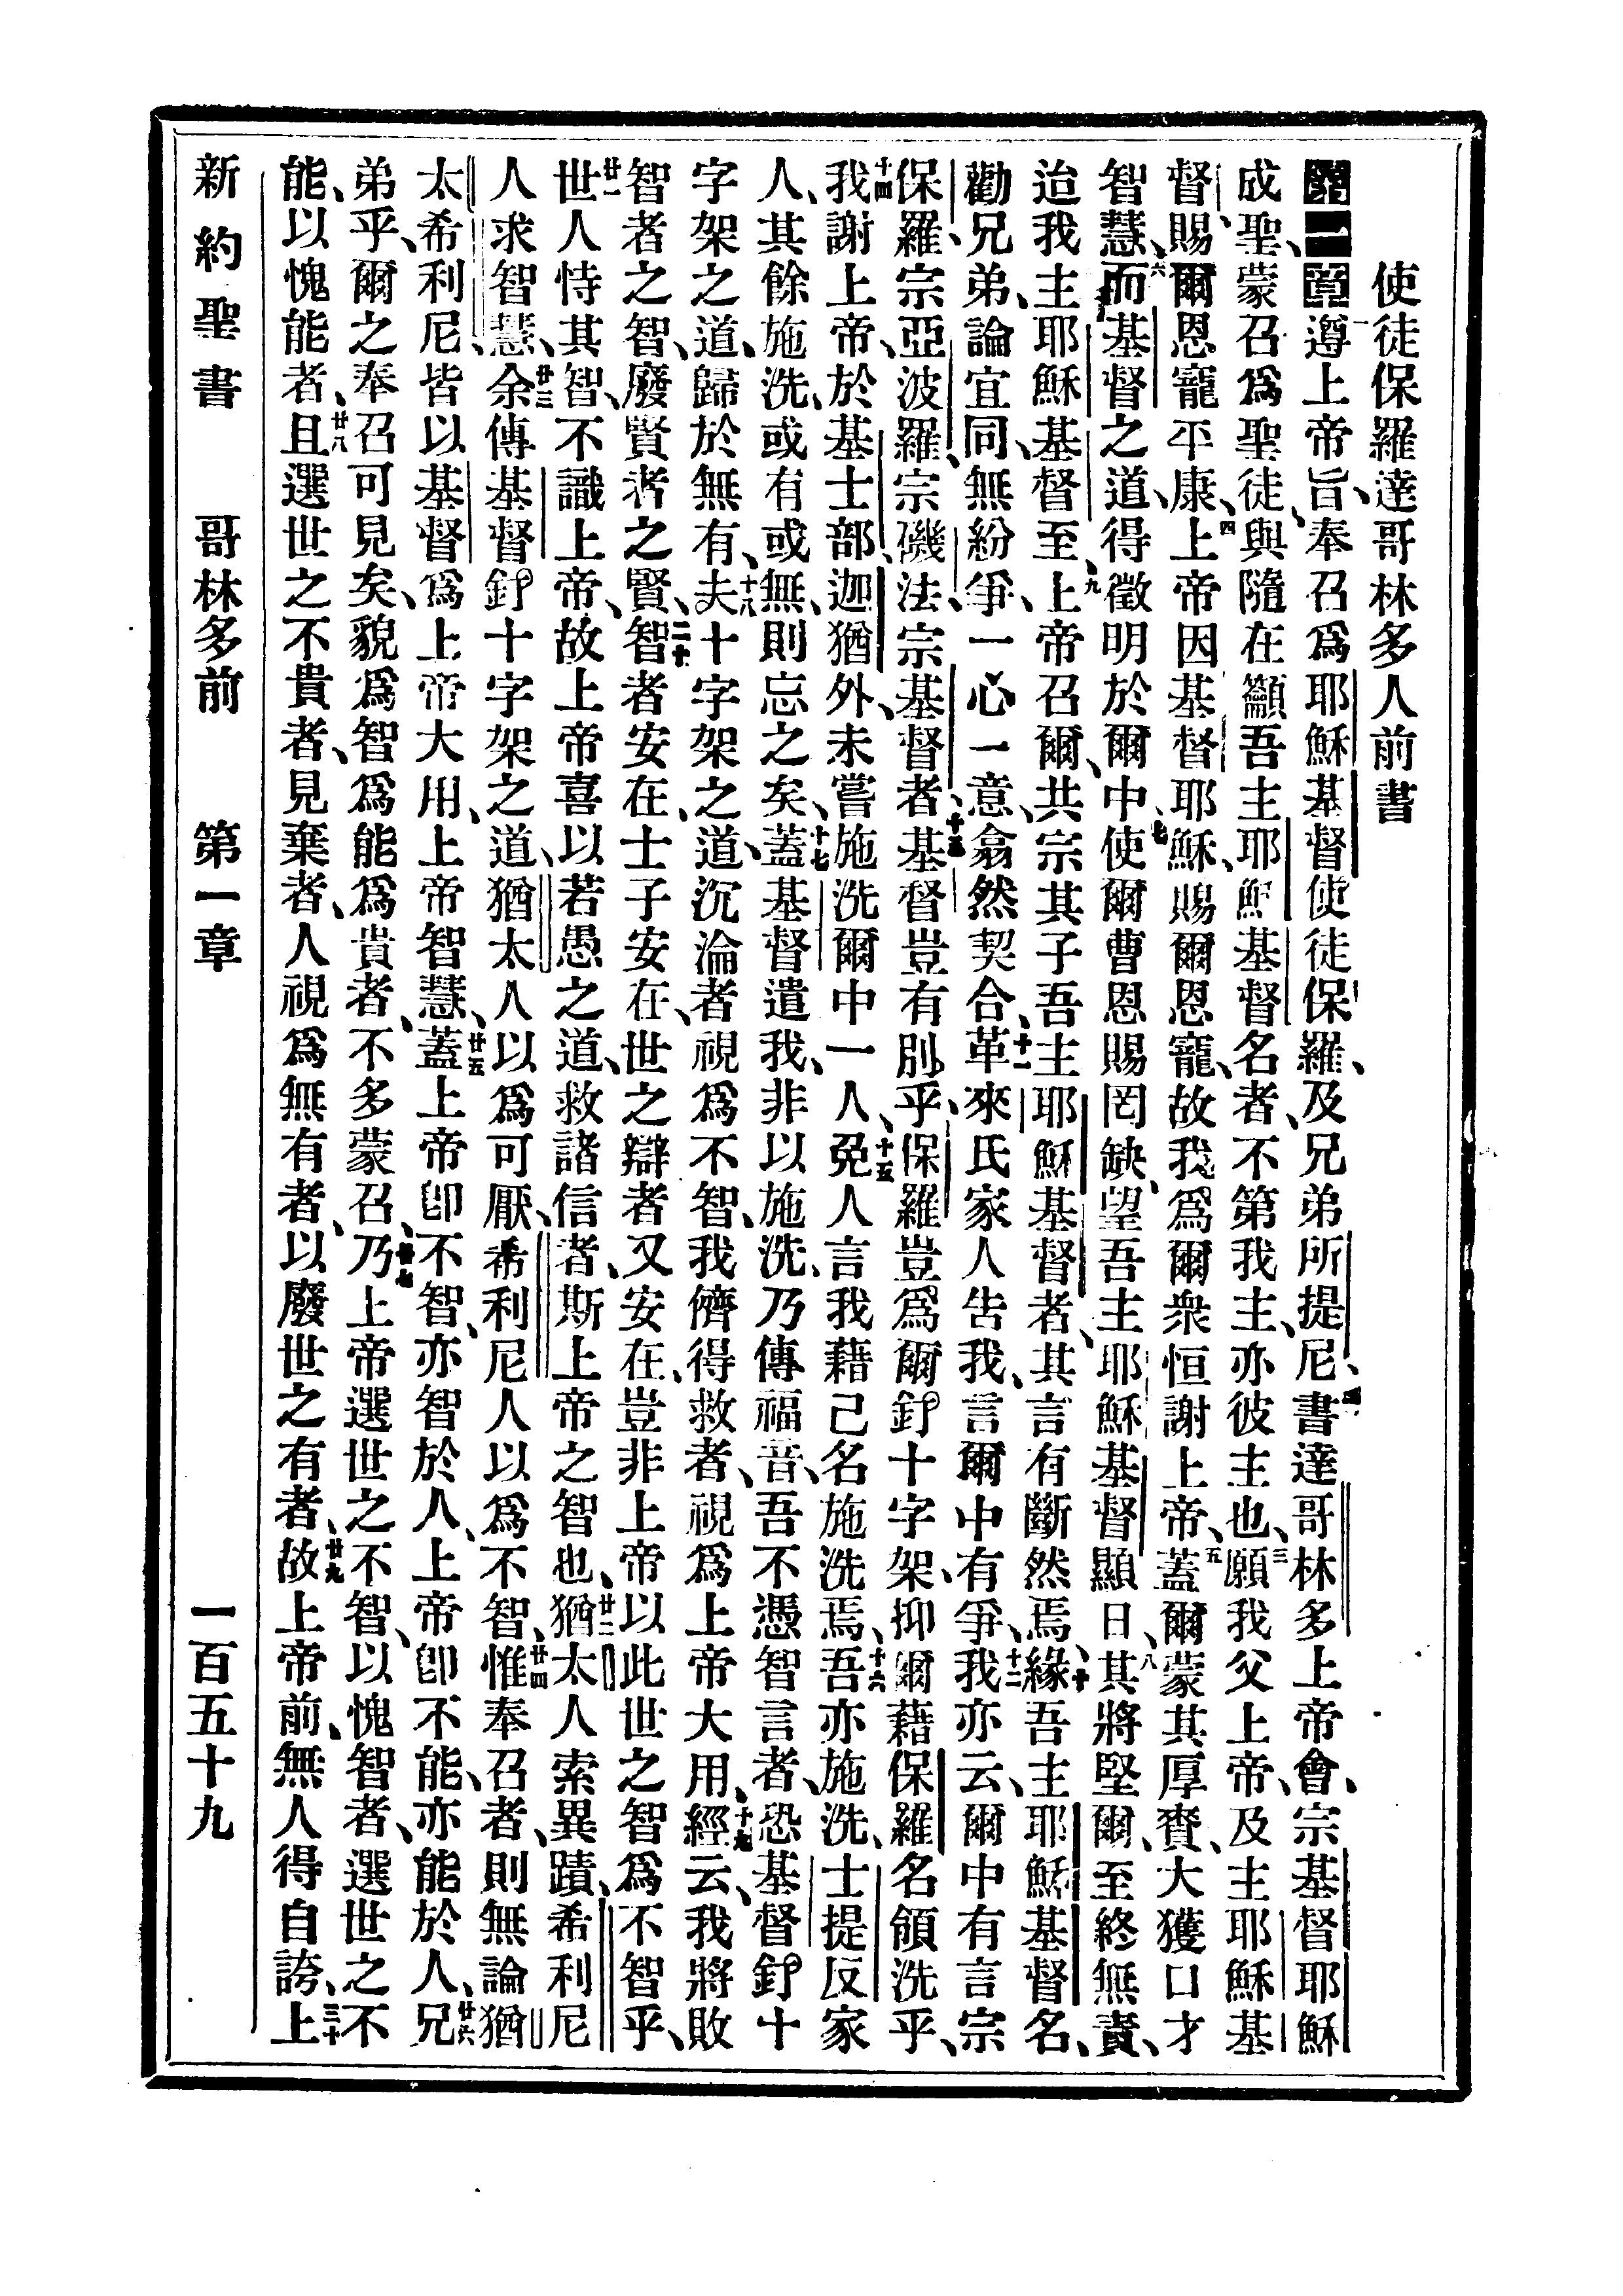 使徒保羅達哥林多人前書
第一章一遵上帝旨、奉召爲耶穌基督使徒保羅、及兄弟所提尼、二書達哥林多上帝會、宗基督耶穌
成聖、蒙召爲聖徒、與隨在籲吾主耶穌基督名者、不第我主、亦彼主也、三願我父上帝、及主耶穌基
督、賜爾恩寵平康、四上帝因基督耶穌、賜爾恩寵、故我爲爾衆恒謝上帝、五蓋爾蒙其厚賚、大獲口才
智慧、六而基督之道、得徵明於爾中、七使爾曹恩賜罔缺、望吾主耶穌基督顯日、八其將堅爾、至終無責、
迨我主耶穌基督至、九上帝召爾、共宗其子吾主耶穌基督者、其言有斷然焉、十緣吾主耶穌基督名、
勸兄弟、論宜同、無紛爭、一心一意、翕然契合、十一革來氏家人告我、言爾中有爭、十二我亦云、爾中有言宗
保羅、宗亞波羅、宗磯法、宗基督者、十三基督豈有別乎、保羅豈爲爾釘十字架、抑爾藉保羅名領洗乎、
十四我謝上帝、於基士部、迦猶外、未嘗施洗爾中一人、十五免人言我藉己名施洗焉、十六吾亦施洗、士提反家
人、其餘施洗、或有或無、則忘之矣、十七蓋基督遣我、非以施洗、乃傳福音、吾不憑智言者、恐基督釘十
字架之道、歸於無有、十八夫十字架之道、沉淪者視爲不智、我儕得救者、視爲上帝大用、十九經云、我將敗
智者之智、廢賢者之賢、二十智者安在、士子安在、世之辯者又安在、豈非上帝以此世之智爲不智乎、
廿一世人恃其智、不識上帝、故上帝喜以若愚之道、救諸信者、斯上帝之智也、廿二猶太人索異蹟、希利尼
人求智慧、廿三余傳基督釘十字架之道、猶太人以爲可厭、希利尼人以爲不智、廿四惟奉召者、則無論猶
太希利尼、皆以基督爲上帝大用、上帝智慧、廿五蓋上帝卽不智、亦智於人、上帝卽不能、亦能於人、廿六兄
弟乎、爾之奉召可見矣、貌爲智爲能爲貴者、不多蒙召、廿七乃上帝選世之不智、以愧智者、選世之不
能、以愧能者、廿八且選世之不貴者、見棄者、人視爲無有者、以廢世之有者、廿九故上帝前、無人得自誇、三十上
新約聖書 哥林多前 第一章 一百五十九